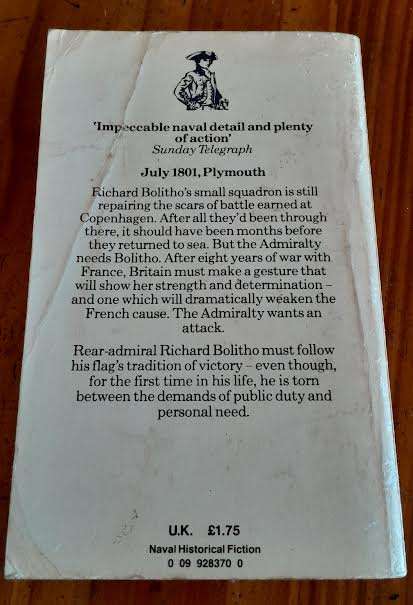 'Impeccable naval detail and plenty
of action'
Sunday Telegraph
July 1801, Plymouth
Richard Bolitho's small squadron is still
repairing the scars of battle earned at
Copenhagen. After all they'd been through
there, it should have been months before
they returned to sea. But the Admiralty
needs Bolitho. After eight years of war with
France, Britain must make a gesture that
will show her strength and determination –
and one which will dramatically weaken the
French cause. The Admiralty wants an
attack.
Rear-admiral Richard Bolitho must follow
his flag's tradition of victory – even though,
for the first time in his life, he is torn
between the demands of public duty and
personal need.
U.K. £1.75
Naval Historical Fiction
0 09 928370 0